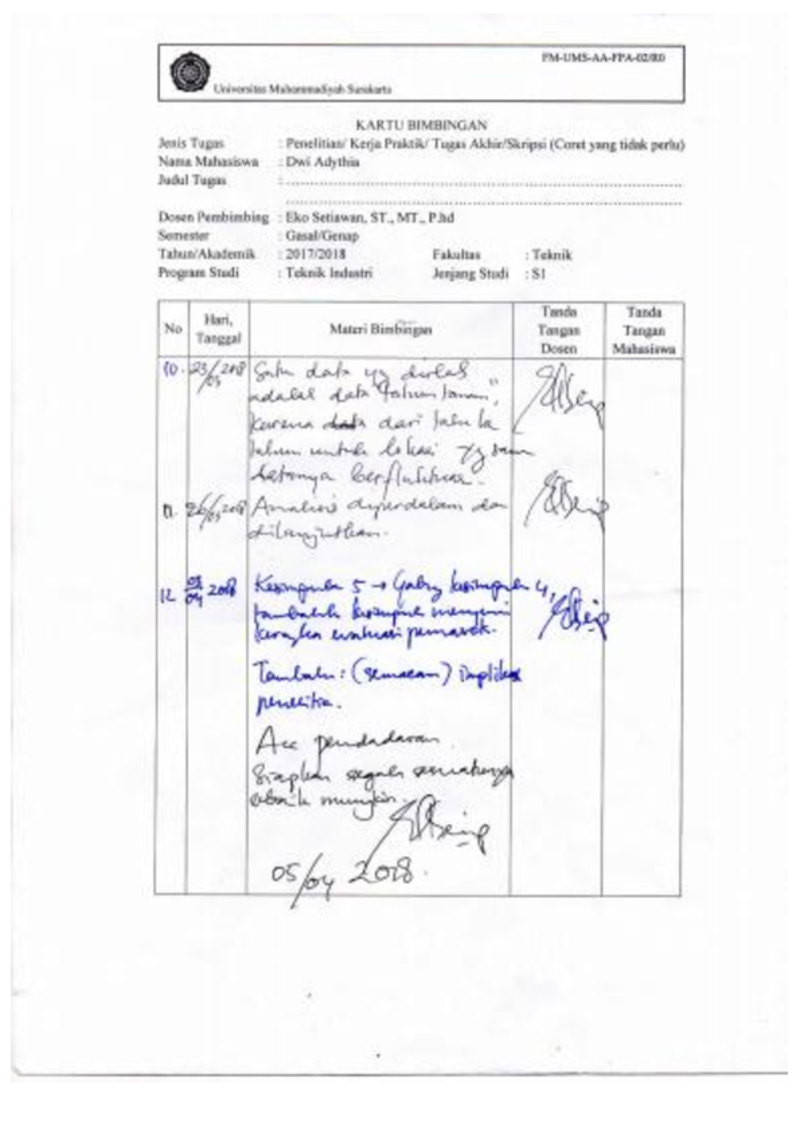 FM-UMS-AA-FPA-02/R0
Universitas Muhammadiyah Surakarta
KARTU BIMBINGAN
Jenis Tugas : Penelitian/ Kerja Praktik/ Tugas Akhir/Skripsi (Coret yang tidak perlu)
Nama Mahasiswa : Dwi Adythia
Judul Tugas :
Dosen Pembimbing : Eko Setiawan, ST., MT., P.hd
Semester : Gasal/Genap
Tahun/Akademik : 2017/2018 Fakultas : Teknik
Program Studi : Teknik Industri Jenjang Studi : S1
No Hari, Tanggal Materi Bimbingan Tanda Tangan Dosen Tanda Tangan Mahasiswa
10. 23/03 2018 Satu data yg
adalah data "tahun tanam",
karena data dari tahun ke
tahun untuk lokasi yg sama
berfluktuasi.
11. 26/03 2018 Analisis diperdalam dan
dilanjutkan.
12 03/04 2018 Kesimpulan 5 → Gabung kesimpulan 4,
tambahkan kesimpulan mengenai
kerangka evaluasi pemasok.
Tambahan: (semacam) implikasi
penelitian.
Acc pendadaran.
Siapkan segala sesuatunya
sebaik mungkin.
05/04 2018.